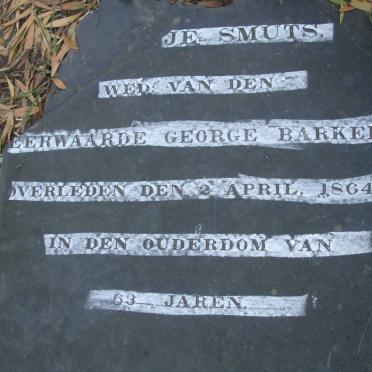 JE. SMUTS.
WED. VAN DEN
EERWAARDE GEORGE BARKER
OVERLEDEN DEN 2 APRIL, 1864
IN DEN OUDERDOM VAN
63 JAREN.